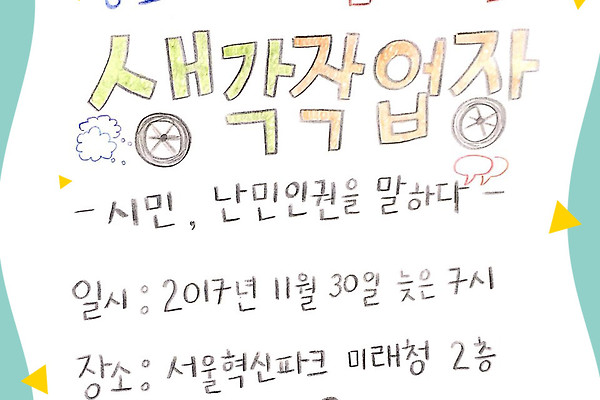 생각작업장
- 시민, 난민인권을 말하다 -
일시 : 2017년 11월 30일 늦은 7시
장소 : 서울혁신파크 미래청 2층